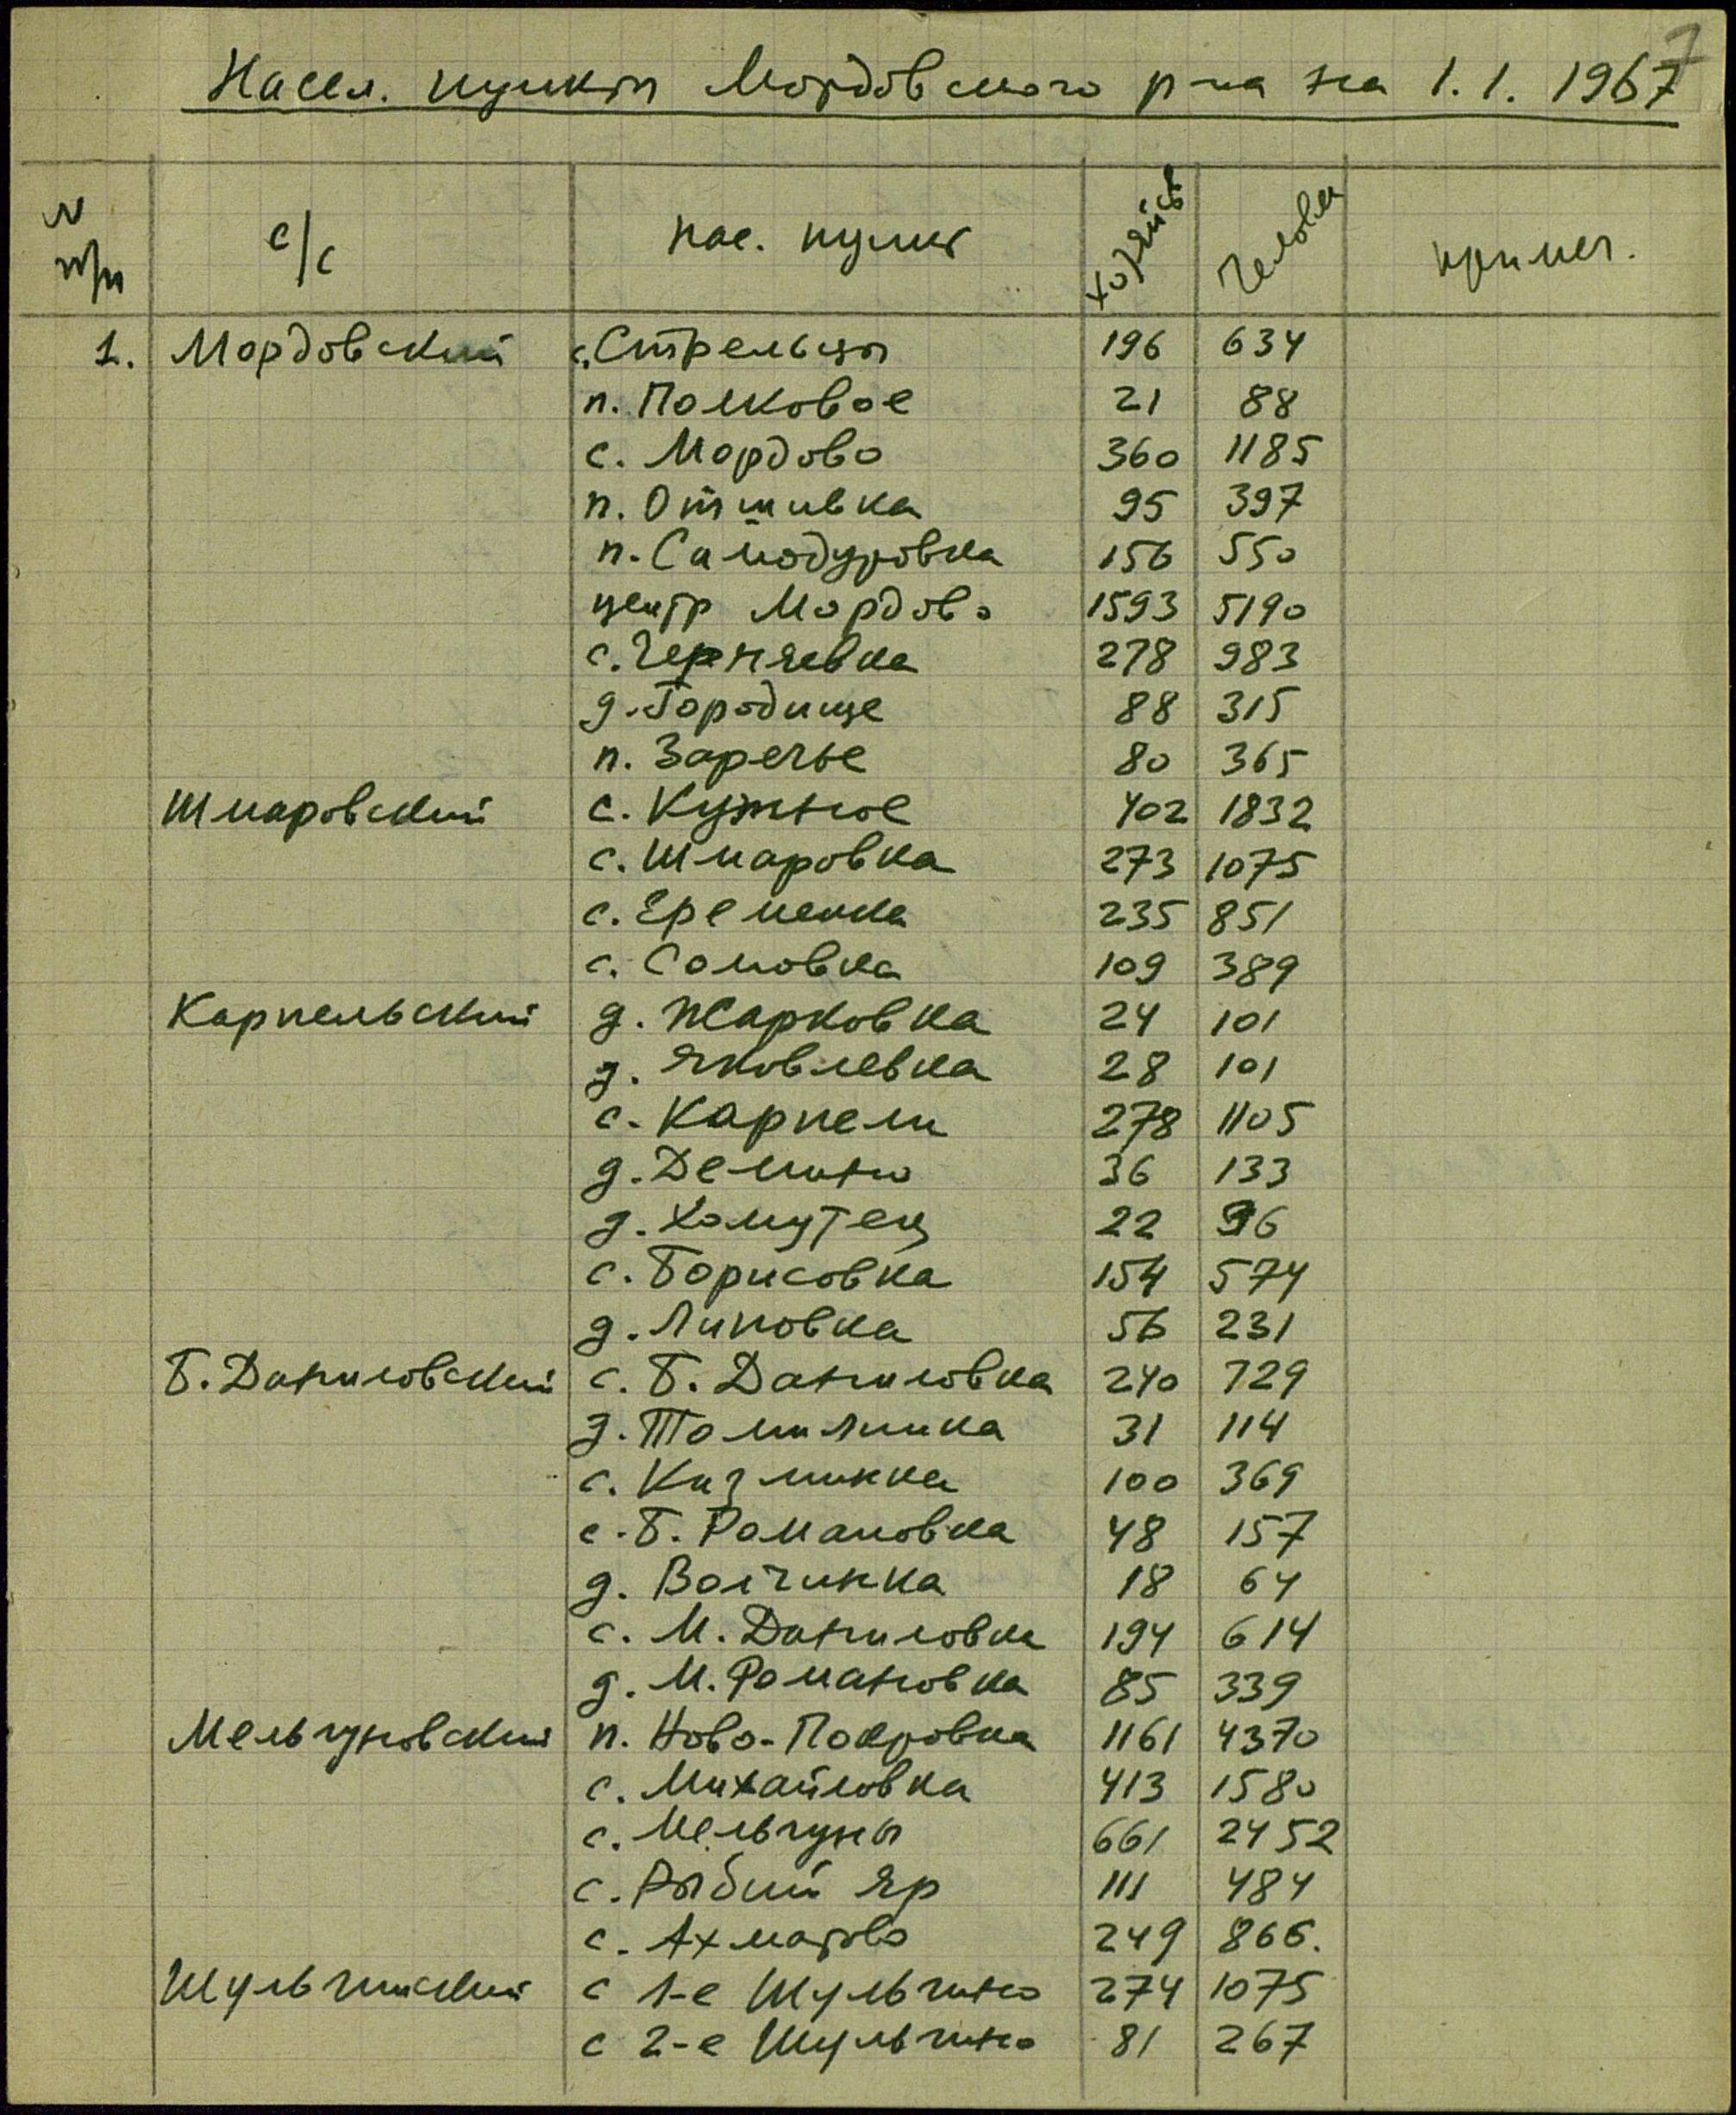 7
Насел. пункты Мордовского р-на на 1.1.1967
N п/п с/с нас. пункт хозяйств Человек примеч.
1. Мордовский с. Стрельцы 196 634
п. Полковое 21 88
с. Мордово 360 1185
п. Отшивка 95 397
п. Самодуровка 156 550
центр Мордово 1593 5190
с. Черняевка 278 983
д. Городище 88 315
п. Заречье 80 365
Шмаровский с. Кужное 402 1832
с. Шмаровка 273 1075
с. Еременка 235 851
с. Сомовка 109 389
Карпельский д. Жарковка 24 101
д. Яковлевка 28 101
с. Карпели 278 1105
д. Демино 36 133
д. Хомутец 22 96
с. Борисовка 154 574
д. Липовка 56 231
Б. Даниловский с. Б. Даниловка 240 729
д. Томилинка 31 114
с. Кизминка 100 369
с. Б. Романовка 48 157
д. Волчинка 18 64
с. М. Даниловка 194 614
д. М. Романовка 85 339
Мельгуновский п. Ново-Покровка 1161 4370
с. Михайловка 413 1580
с. Мельгуны 661 2452
с. Рыбий Яр 111 484
с. Ахматово 249 866.
Шульгинский с 1-е Шульгино 274 1075
с 2-е Шульгино 81 267